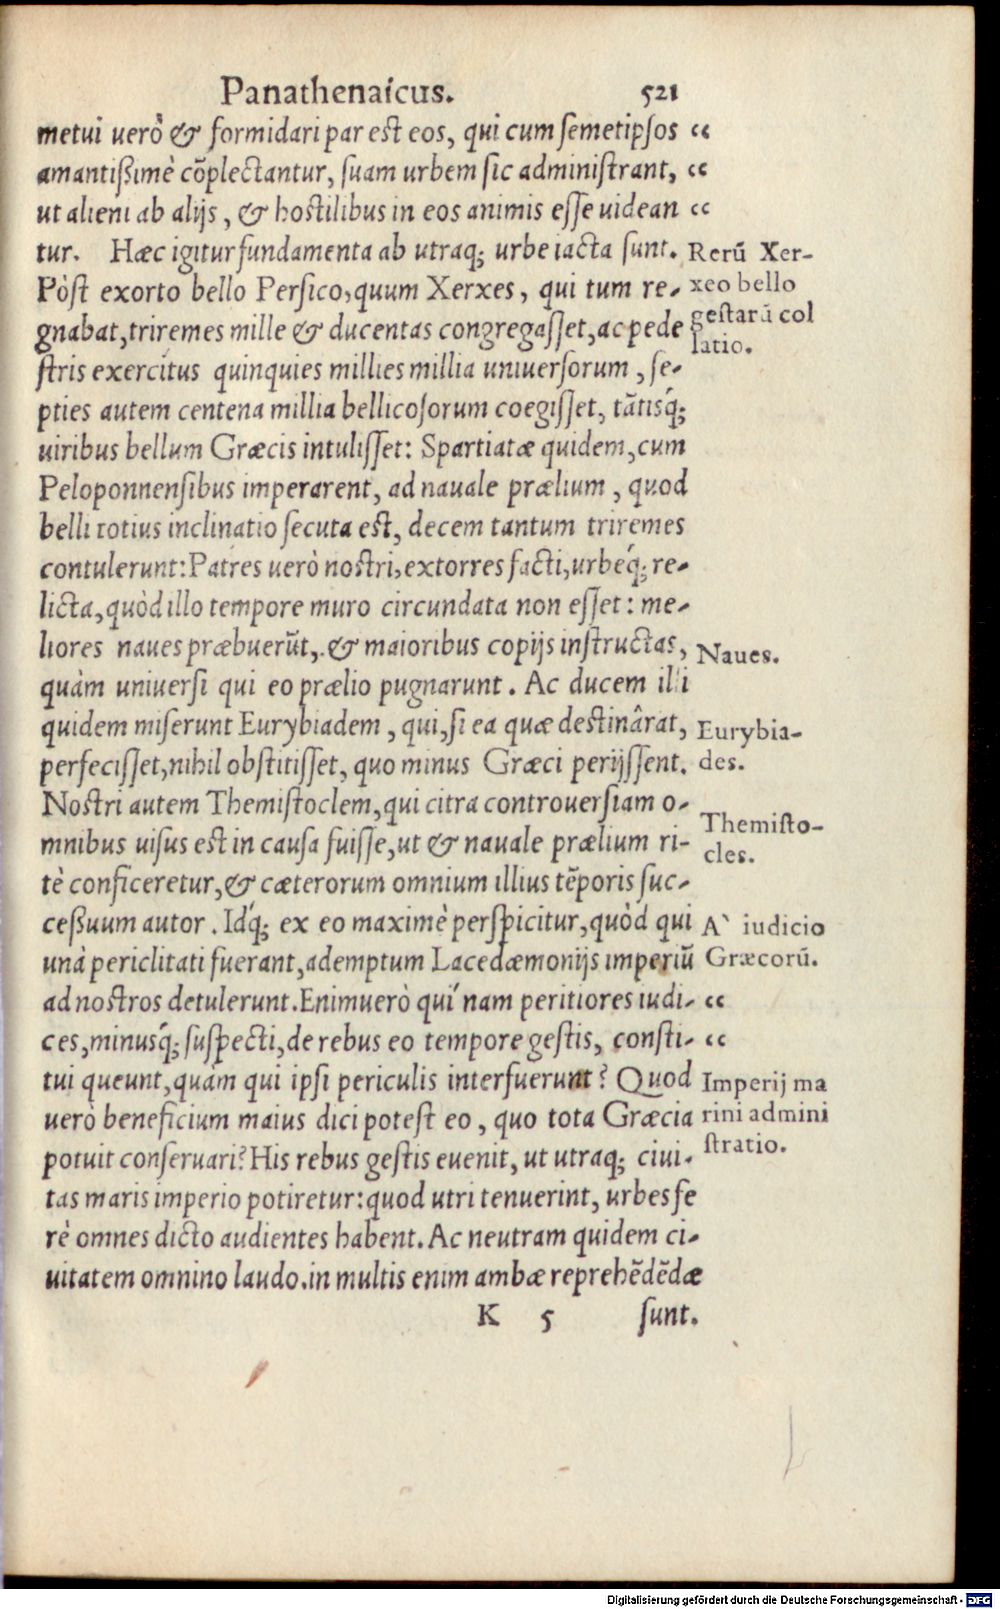 Panathenaicus. 521
metui uerò & formidari par est eos, qui cum semetipsos “
amantißimè cõplectantur, suam urbem sic administrant, “
ut alieni ab alijs, & hostilibus in eos animis esse uidean “
tur. Hæc igitur fundamenta ab utraq; urbe iacta sunt.
Pòst exorto bello Persico, quum Xerxes, qui tum re-
gnabat, triremes mille & ducentas congregasset, ac pede
stris exercitus quinquies millies millia uniuersorum, se-
pties autem centena millia bellicosorum coegisset, tãtisq́;
uiribus bellum Græcis intulisset: Spartiatæ quidem, cum
Peloponnensibus imperarent, ad nauale prælium, quod
belli totius inclinatio secuta est, decem tantum triremes
contulerunt: Patres uerò nostri, extorres facti, urbeq́; re-
licta, quòd illo tempore muro circundata non esset: me-
liores naues præbuerũt, & maioribus copijs instructas,
quàm uniuersi qui eo prælio pugnarunt. Ac ducem illi
quidem miserunt Eurybiadem, qui, si ea quæ destinârat,
perfecisset, nihil obstitisset, quo minus Græci perijssent.
Nostri autem Themistoclem, qui citra controuersiam o-
mnibus uisus est in causa fuisse, ut & nauale prælium ri-
tè conficeretur, & cæterorum omnium illius tẽporis suc-
ceßuum autor. Idq́; ex eo maximè perspicitur, quòd qui
unà periclitati fuerant, ademptum Lacedæmonijs imperiũ
ad nostros detulerunt. Enimuerò qui nam peritiores iudi- “
ces, minusq́; suspecti, de rebus eo tempore gestis, consti- “
tui queunt, quàm qui ipsi periculis interfuerunt? Quod
uerò beneficium maius dici potest eo, quo tota Græcia
potuit conseruari? His rebus gestis euenit, ut utraq; ciui-
tas maris imperio potiretur: quod utri tenuerint, urbes fe
rè omnes dicto audientes habent. Ac neutram quidem ci-
uitatem omnino laudo. in multis enim ambæ reprehẽdẽdæ
K 5 sunt.
Rerũ Xer-
xeo bello
gestarũ col
latio.
Naues.
Eurybia-
des.
Themisto-
cles.
A` iudicio
Græcorũ.
Imperij ma
rini admini
stratio.
Digitalisierung gefördert durch die Deutsche Forschungsgemeinschaft - DFG